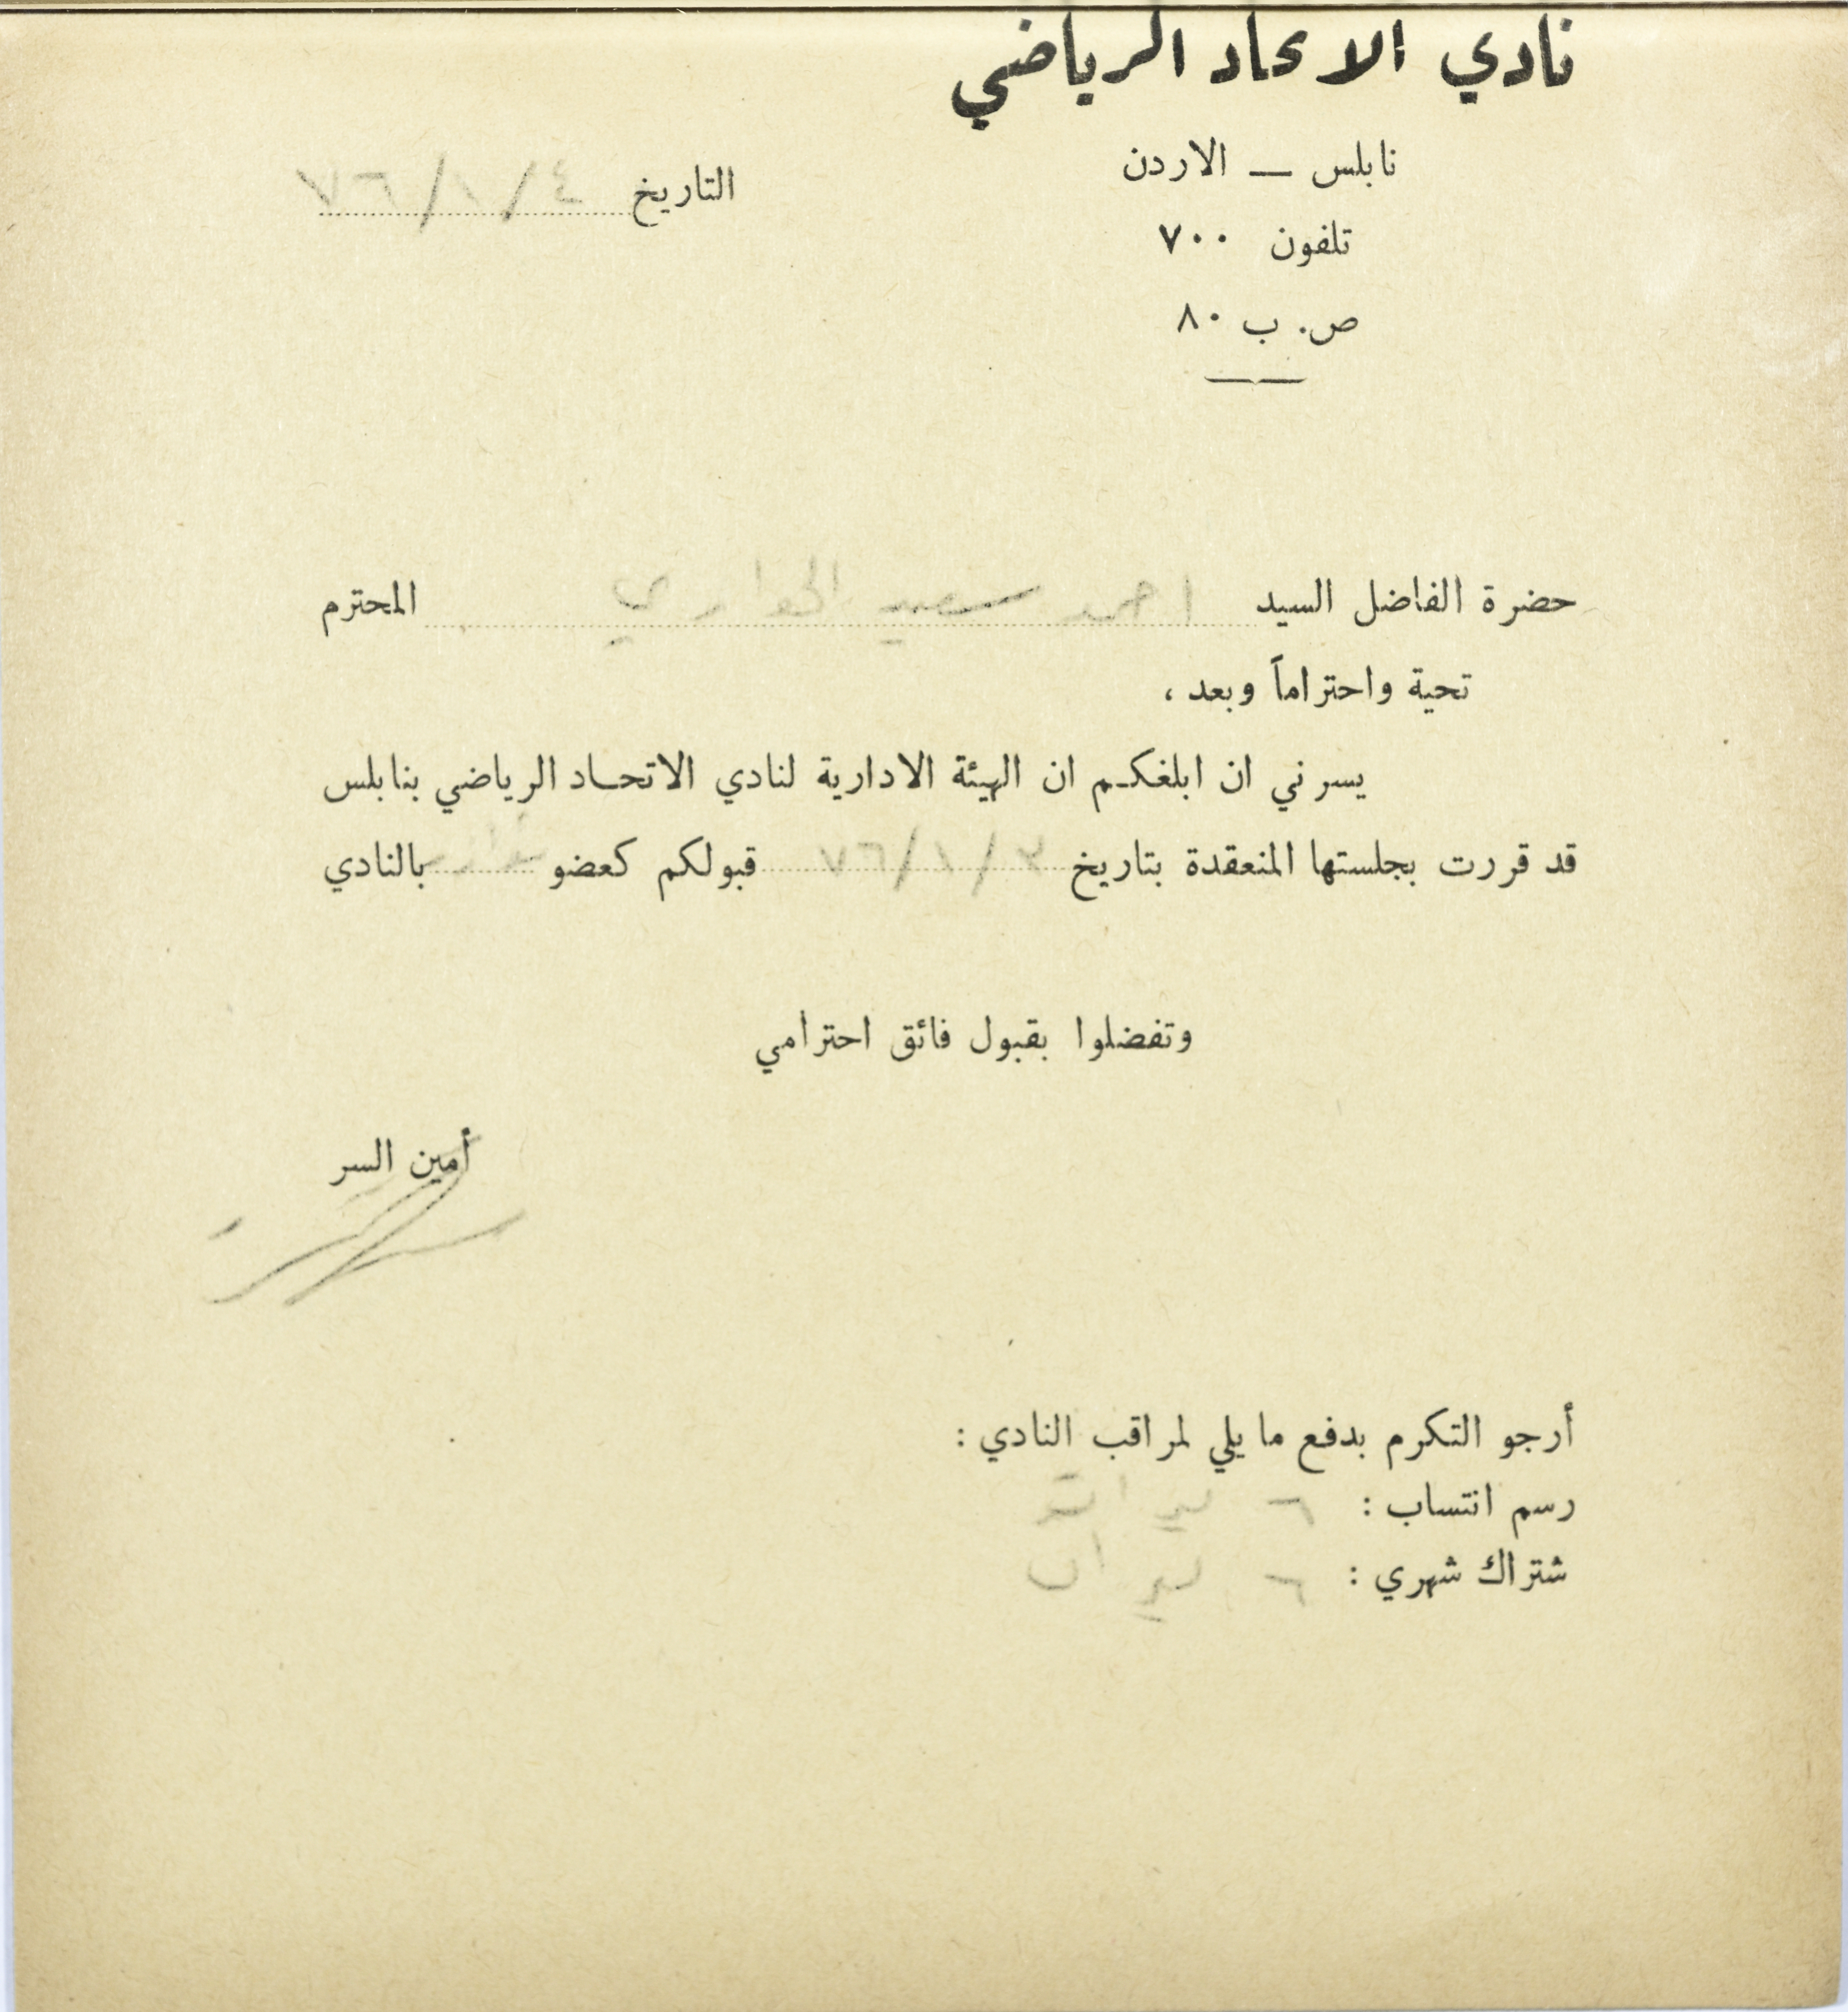 نادي الاتحاد الرياضي
نابلس — الاردن
تلفون ٧٠٠
ص. ب ٨٠
التاريخ ٤/١/٦٧
حضرة الفاضل السيد احمد سعيد الحواري المحترم
تحية واحتراماً وبعد ،
يسرني ان ابلغكم ان الهيئة الادارية لنادي الاتحاد الرياضي بنابلس
قد قررت بجلستها المنعقدة بتاريخ ٣/١/٦٧ قبولكم كعضو بالنادي
وتفضلوا بقبول فائق احترامي
أمين السر
أرجو التكرم بدفع ما يلي لمراقب النادي :
رسم انتساب : ٦ ليرات
شتراك شهري : ٦ ليرات